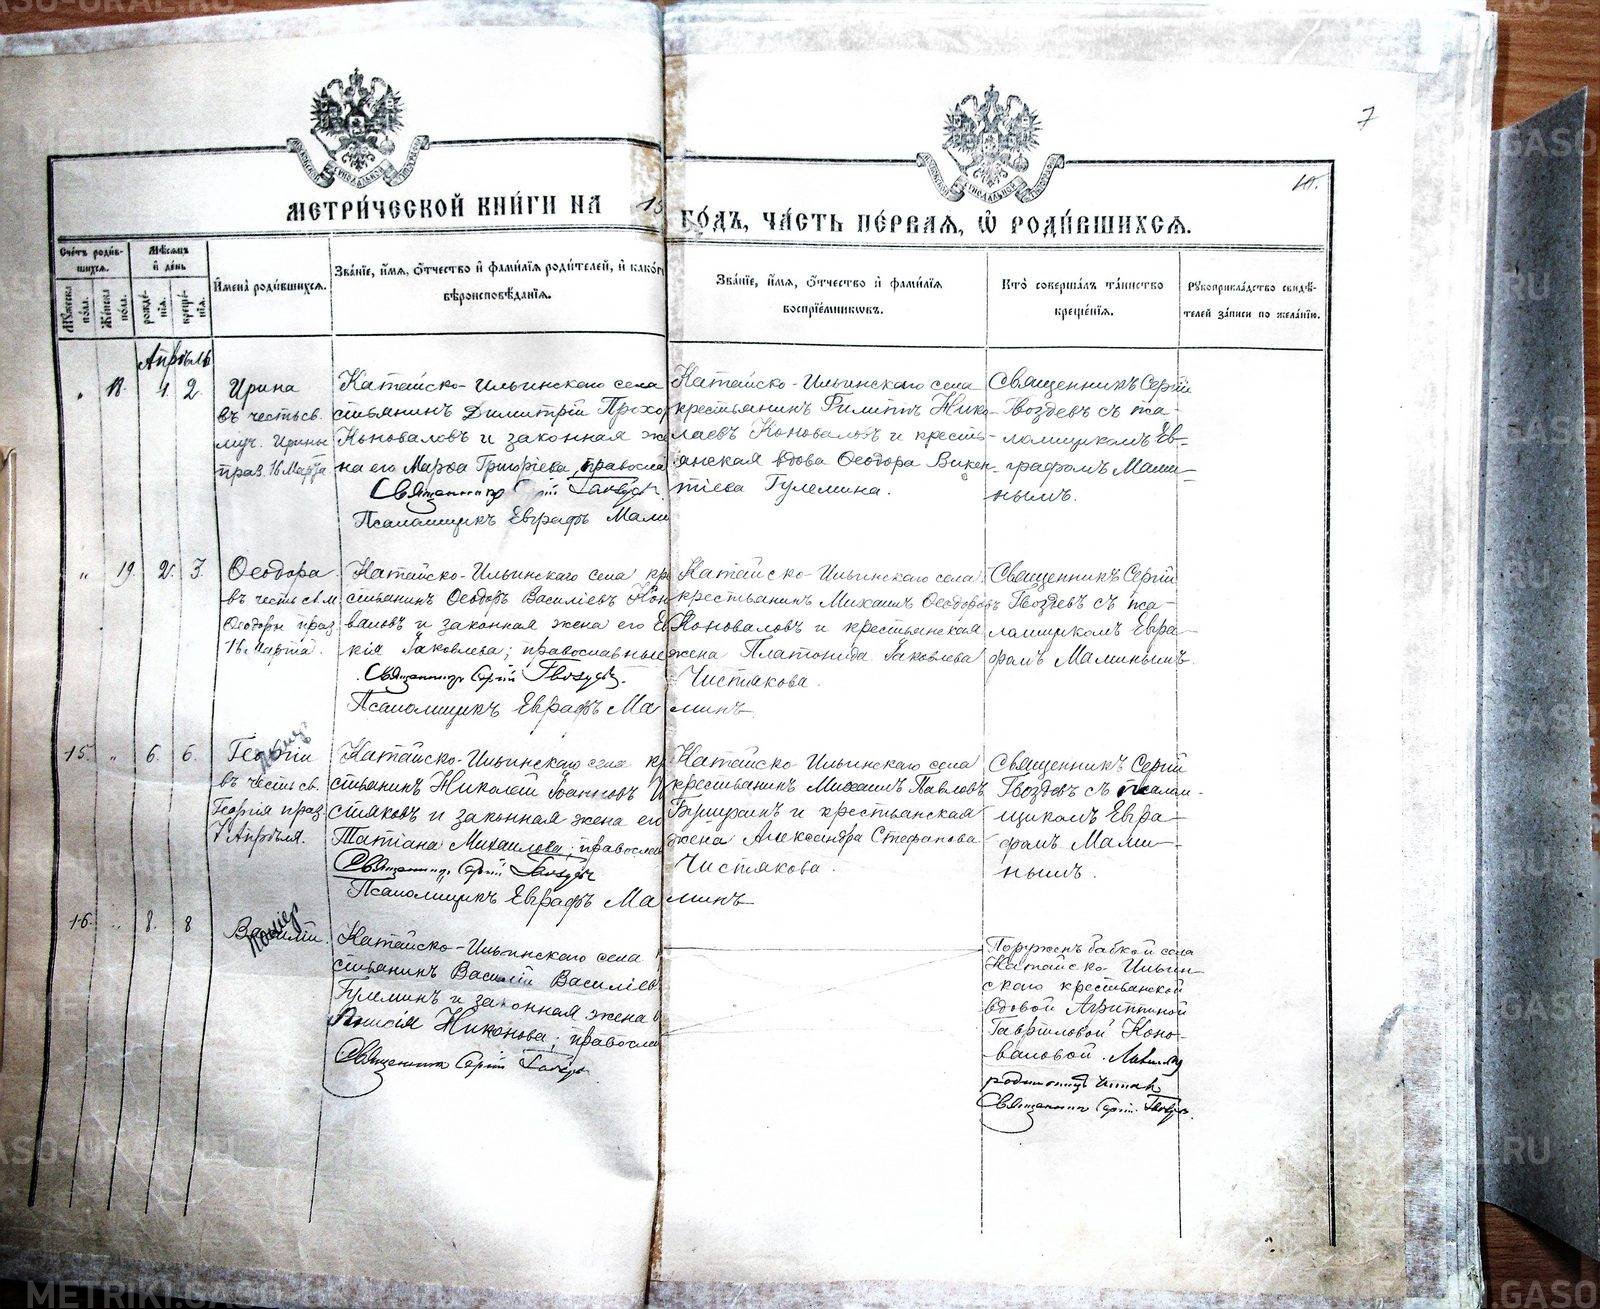 7
МЕТРИ́ЧЕСКОЙ КНИ́ГИ НА 15
ГО́ДЪ, ЧА́СТЬ ПЕ́РВАЯ, Ѡ҆ РОДИ́ВШИХСЯ.
Сче́тъ роди́вшихся.
Му́жеска по́ла.
Же́нска по́ла.
Мѣ́сяцъ и҆ де́нь
рожде́нія.
креще́нія.
И҆мена̀ роди́вшихся.
Зва́ніе, и҆́мя, ѻ҆́тчество и҆ фами́лія роди́телей, и҆ како́г
вѣроисповѣ́данія.
Зва́ніе, и҆́мя, ѻ҆́тчество и҆ фами́лія
воспрїе́мниковъ.
Кто̀ соверша́лъ та́инство
креще́нія.
Рукоприкла́дство свидѣ́-
телей за́писи по жела́нію.
Апрѣль
„ 18. 1. 2.
Ирина
въ честь св.
муч. Ирины
праз. 16 Марта
Катайско-Ильинскаго села
стьянинъ Димитрій Прохор
Коноваловъ и законная же
на его Марѳа Григоріева, правосла
Священникъ Сергій Гвоздевъ.
Псаломщикъ Евграфъ Мами
Катайско-Ильинскаго села
крестьянинъ Филиппъ Нико-
лаевъ Коноваловъ и кресть-
янская вдова Ѳеодора Викен-
тіева Гулемина.
Священникъ Сергій
Гвоздевъ съ пса-
ломщикомъ Ев-
графомъ Мами-
нымъ.
„ 19. 2. 3.
Ѳеодора
въ честь св. м.
Ѳеодоры праз.
16 Марта.
Катайско-Ильинскаго села кре
стьянинъ Ѳеодоръ Василіевъ Коно
валовъ и законная жена его Ев
кія Іаковлева; православные
Священникъ Сергій Гвоздевъ.
Псаломщикъ Евграфъ Маминъ
Катайско-Ильинскаго села
крестьянинъ Михаилъ Ѳеодоровъ
Коноваловъ и крестьянская
жена Платонида Іаковлева
Чистякова.
Священникъ Сергій
Гвоздевъ съ пса-
ломщикомъ Евгра-
фомъ Маминымъ.
15. „ 6. 6.
Георгій
въ честь св.
Георгія праз.
7 Апрѣля.
Катайско-Ильинскаго села кр
стьянинъ Николай Іоанновъ Чи
стяковъ и законная жена его
Татіана Михаилова; правосла
Священникъ Сергій Гвоздевъ
Псаломщикъ Евграфъ Маминъ
Катайско-Ильинскаго села
крестьянинъ Михаилъ Павловъ
и крестьянская
жена Александра Стефанова
Чистякова.
Священникъ Сергій
Гвоздевъ съ псалом-
щикомъ Евгра-
фомъ Мами-
нымъ.
16. „ 8. 8
Василій.
Катайско-Ильинскаго села
стьянинъ Василій Василіев
Гулеминъ и законная жена
Никонова; правосла
Священникъ Сергій Гвоздевъ
Погруженъ бабкой села
Катайско-Ильин-
скаго крестьянской
вдовой Агриппиной
Гавриловой Коно-
валовой.
Священникъ Сергій Гвоздевъ.
METRIKI.GASO-URAL.RU